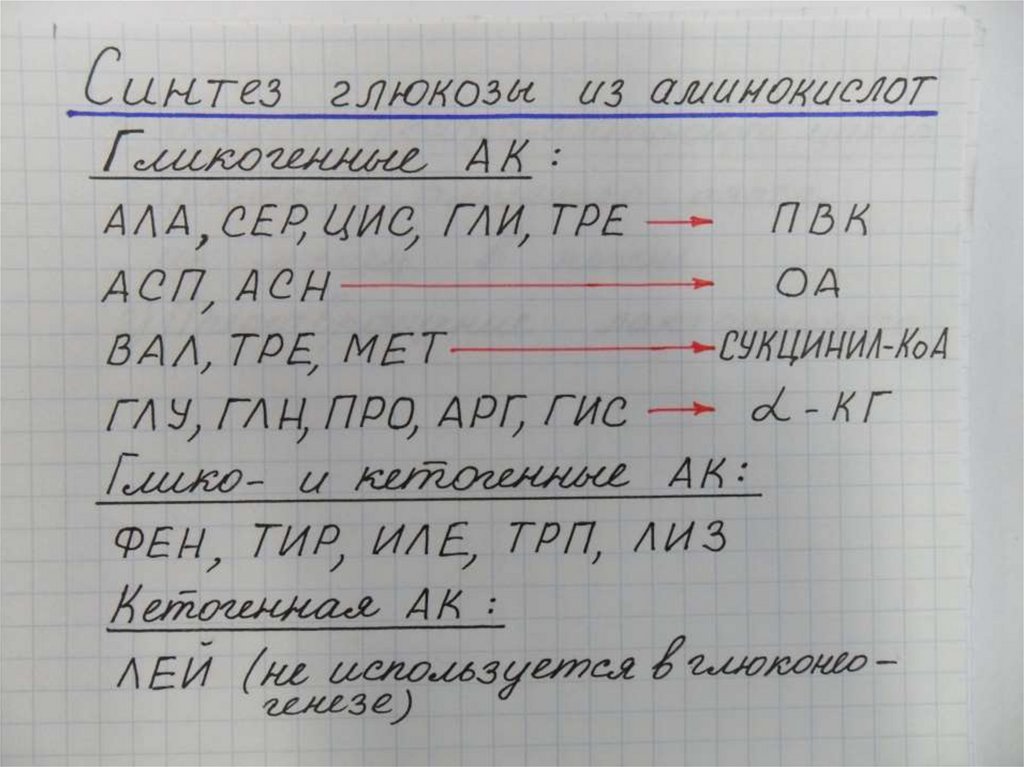 Синтез глюкозы из аминокислот
Гликогенные АК:
АЛА, СЕР, ЦИС, ГЛИ, ТРЕ → ПВК
АСП, АСН → ОА
ВАЛ, ТРЕ, МЕТ → СУКЦИНИЛ-КоА
ГЛУ, ГЛН, ПРО, АРГ, ГИС → α-КГ
Глико- и кетогенные АК:
ФЕН, ТИР, ИЛЕ, ТРП, ЛИЗ
Кетогенная АК:
ЛЕЙ (не используется в глюконео-
генезе)